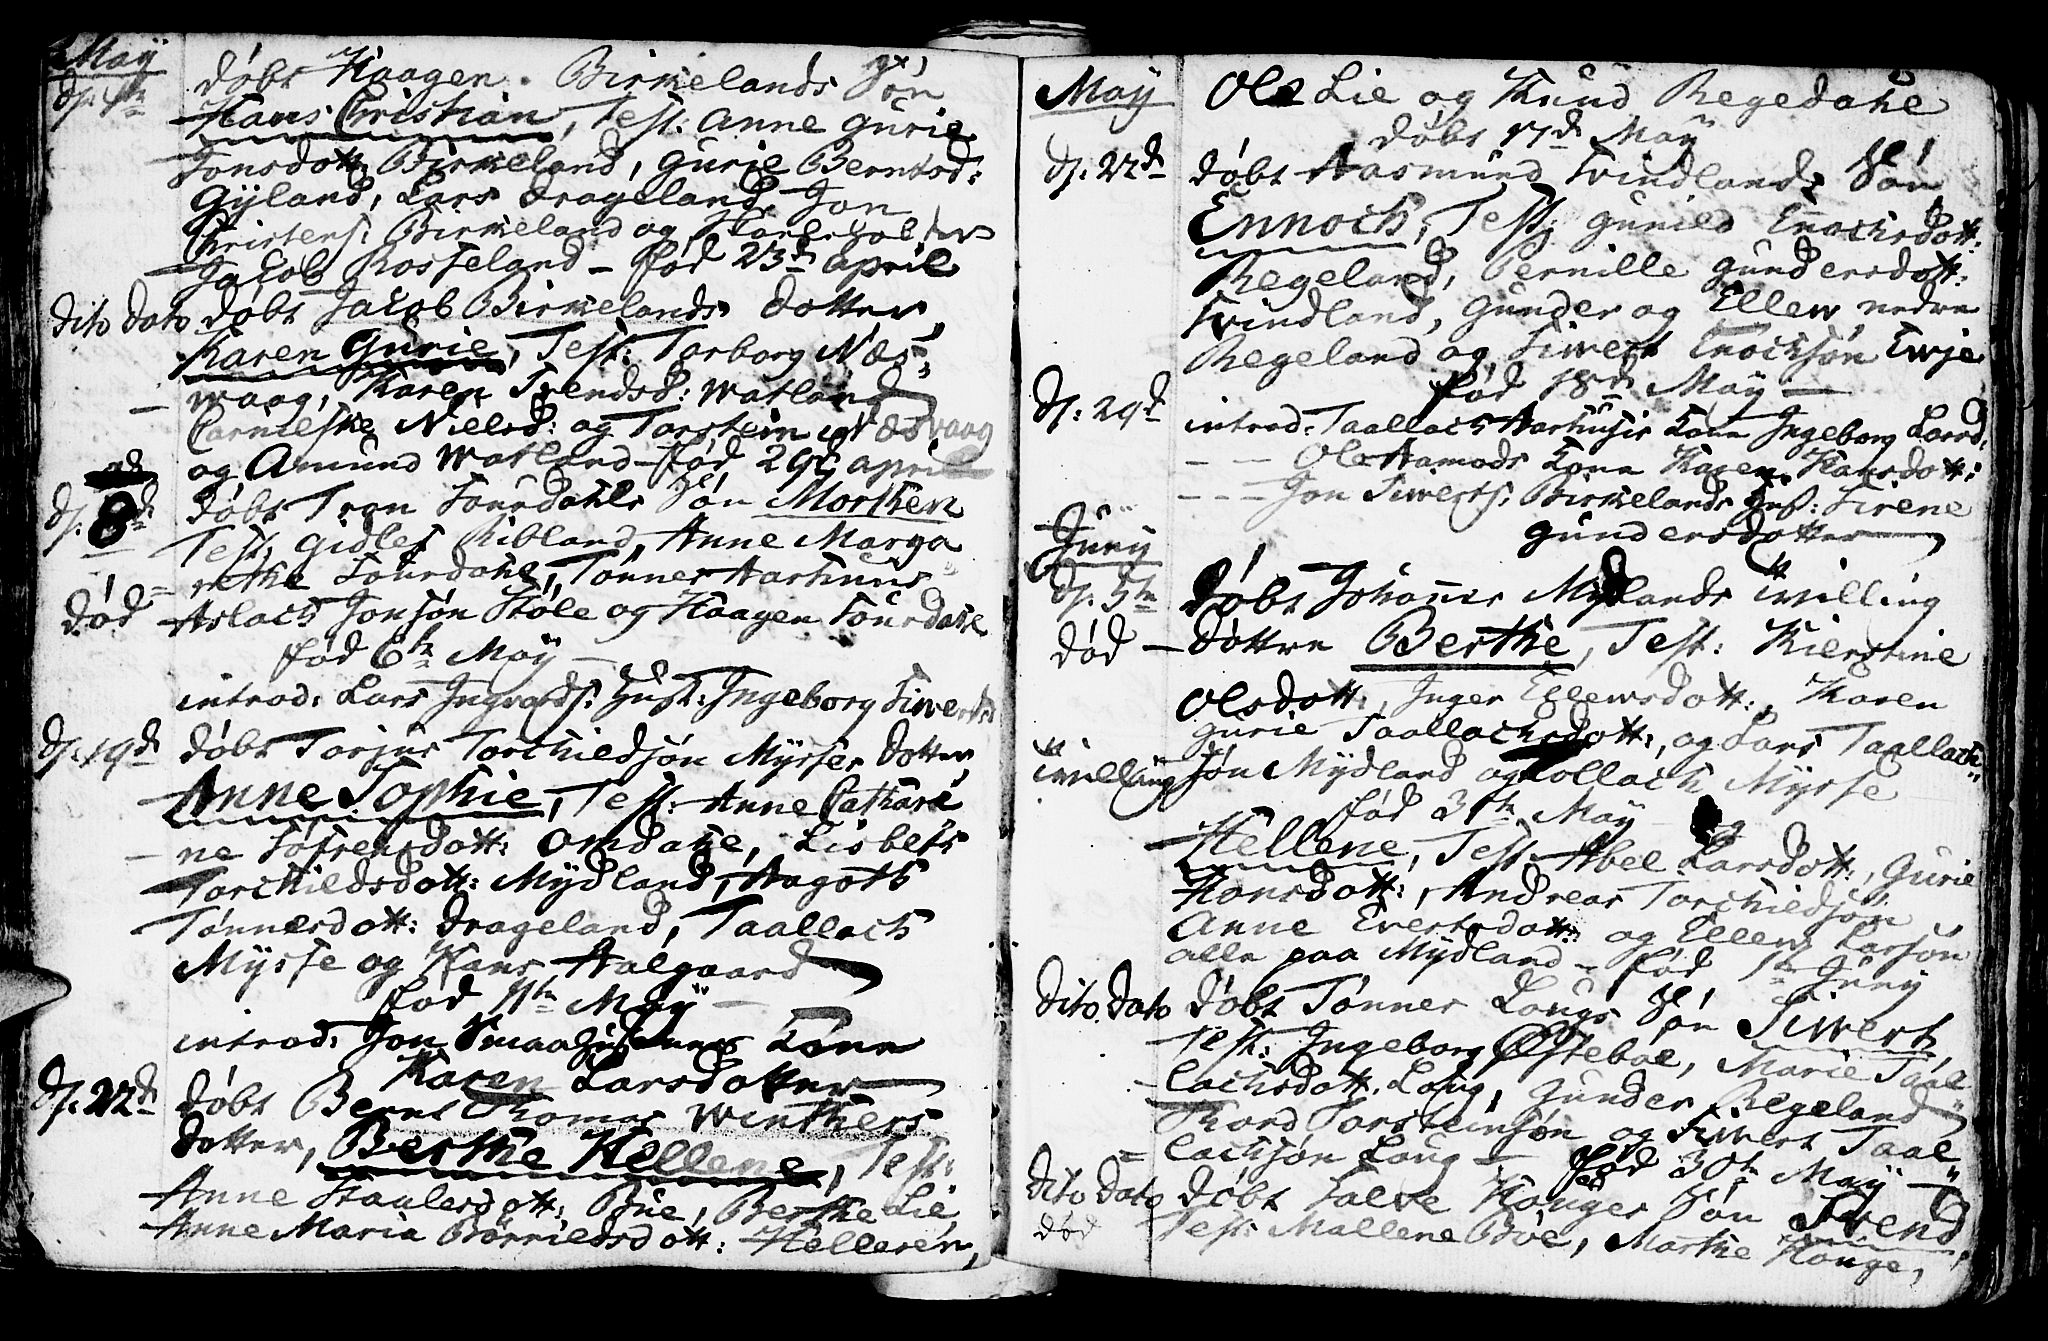 May
d. 1te døbt Haagen Birkelands Søn
Hans Christian, Test: Anne Gurie
Jonsdott: Birkeland, Gurie Berntsd:
Gyland, Lars Drageland, Jon
Christens: Birkeland og
Jacob Rosseland - fød 23de april
dito dato døbt Jacob Birkelands dotter,
Karen Gurie, Test: Torborg Næs-
waag, Karen Trendsd: Watland
Cornelske Nielsd: og Torstein Næswaag
og Amund Watland - fød 29d april
d. 8de døbt Tron Suurdahls Søn Morthen
Test: Gidles Ribland, Anne Marga
død rethe Suurdahl, Tønnes Aarhuus
Aslach Jonsøn Støle og Haagen Suurdahl
fød 6te May
introd: Lars Ingvards: Hust: Ingeborg Siwertsd:
d. 19de døbt Torjus Torchildsøn Mysses dotter
Anne Sophie, Test: Anne Cathari
ne Søfrensdott: Omdahl, Lisbeth
Torchildsdott: Mydland, Aagoth
Tønnesdott: Drageland, Taallach
Mysse og Hans Aalgaard
fød 11te May
introd: Jon Kona
Karen Larsdotter
d. 22de døbt Bernt Thomas Winthers
dotter, Berthe Hellene, Test:
Anne Staalesdott: Bue, Berthe Lie,
Anne Maria Børrildsdott: Helleren,
May Ole Lie og Knud Regedahl
døbt 17de May
d. 22de døbt Aasmund Svindlands Søn
Ennoch, Test: Gunild Enochsdott:
Regeland, Pernille Gundersdott:
Svindland, Gunder og Ellew nedre
Regeland og Siwert Enochsøn Ewje
fød 18de May
d. 29de introd: Taallach Aarhuus Kone Ingeborg Larsd:
- - Ole Aamods Kone Karen Hansdott:
- - - Jon Siwerts: Birkelands Hust: Sirene
Gundersdotter
Juny
d. 5te døbt Johannes Mydlands twilling
død - døttre Berthe, Test: Kierstine
Olsdott:, Inger Ellewsdott:, Karen
Gurie Taallachsdott:, og Lars Taallach
twilling søn Mydland og Tollach Mysse
fød 31te May og
Hellene, Test: Abel Larsdott:, Gurie
Hansdott:, Andreas Torchildsøn
Anne Evertsdott: og Ellew Larsøn
alle paa Mydland - fød 1te Juny
dito dato døbt Tønnes Lougs Søn Siwert,
Test: Ingeborg Østeboe, Marie Taal
lachsdott: Loug, Gunder Regeland
Thord Torsteinsøn og Siwert Taal
lachsøn Loug - fød 30te May
dito dato døbt Salve Houges Søn Svend,
død Test: Mallene Bue, Marthe Houge,